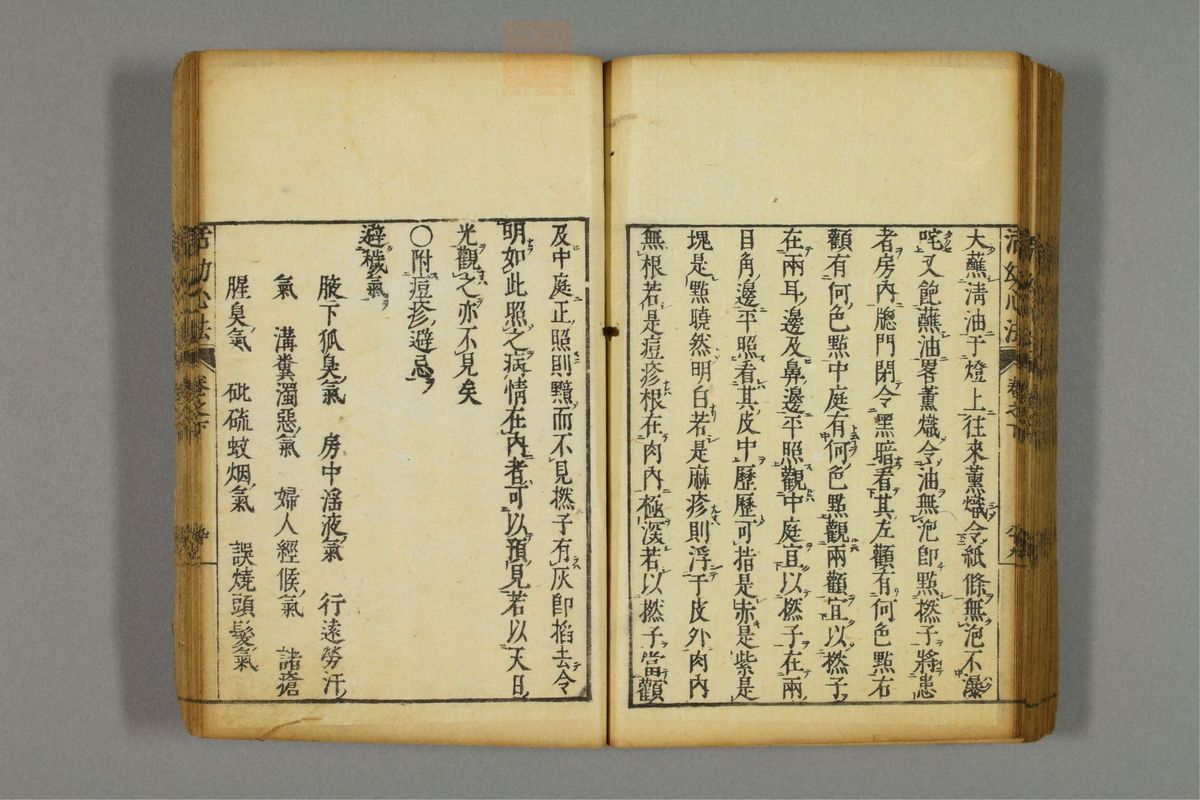 大蘸淸油于燈上往來薰熾令紙條無泡不瀑
咤又飽蘸油畧薰熾令油無泡卽點撚子將患
者房內牕門閉令黑暗看其左顴有何色點右
顴有何色點中庭有何色點觀兩顴宜以撚子
在兩耳邊及鼻邊平照觀中庭宜以撚子在兩
目角邊平照看其皮中歷歷可指是赤是紫是
塊是點曉然明白若是麻疹則浮于皮外肉內
無根若是痘疹根在肉內極深若以撚子當顴
及中庭正照則黯而不見撚子有灰卽掐去令
明如此照之病情在內者可以預見若以天日
光觀之亦不見矣
〇附痘疹避忌
避穢氣
腋下狐臭氣 房中滛液氣 行遠勞汗
氣 溝糞濁惡氣 婦人經候氣 諸瘡
腥臭氣 砒硫蚊烟氣 誤燒頭髮氣
活幼心法 卷之